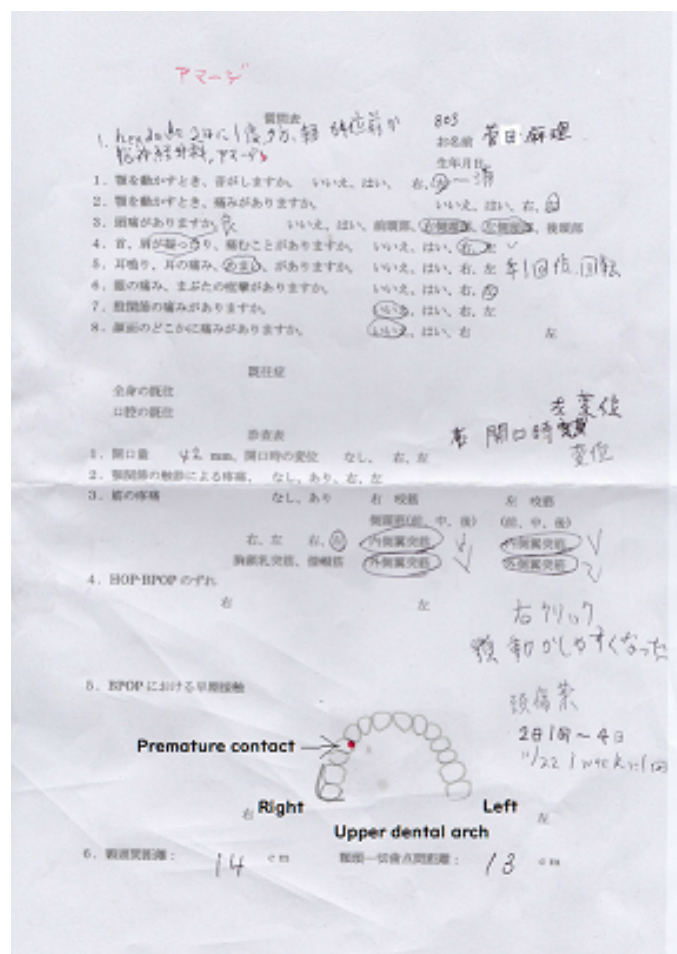 アマージ
質問表
803
1. headache 2日に1度
お名前
脳神経外科, アマージ
生年月日
1．顎を動かすとき、音がしますか。 いいえ、はい、 右、左
2．顎を動かすとき、痛みがありますか。 いいえ、はい、右、左
3．頭痛がありますか。 いいえ、はい、前頭部、右側頭部、左側頭部、後頭部
4．首、肩が凝ったり、痛むことがありますか。 いいえ、はい、右、左
5．耳鳴り、耳の痛み、めまい、がありますか。 いいえ、はい、右、左 年1回位、回転
6．眼の痛み、まぶたの痙攣がありますか。 いいえ、はい、右、左
7．股関節の痛みがありますか。 いいえ、はい、右、左
8．顔面のどこかに痛みがありますか。 いいえ、はい、右 左
既往症
全身の既往
口腔の既往
左変位
診査表
右 開口時
変位
1．開口量 42 mm、開口時の変位 なし、 右、左
2．顎関節の触診による疼痛、 なし、あり、右、左
3．筋の疼痛 なし、あり 右 咬筋 左 咬筋
側頭筋(前、中、後) (前、中、後)
右、左 右、左 内側翼突筋 内側翼突筋
胸鎖乳突筋、僧帽筋 外側翼突筋 外側翼突筋
4．HOP-BPOP のずれ
右 左
右クリック
顎動かしやすくなった
5．BPOP における早期接触
頭痛薬
2日1回〜4日
11/22 1 weekに1回
Premature contact
右 Right Left 左
Upper dental arch
6．顆頭間距離： 14 cm 顆頭―切歯点間距離： 13 cm